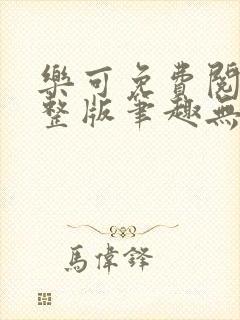 樂可免費閱
整版筆趣無
馬偉鋒